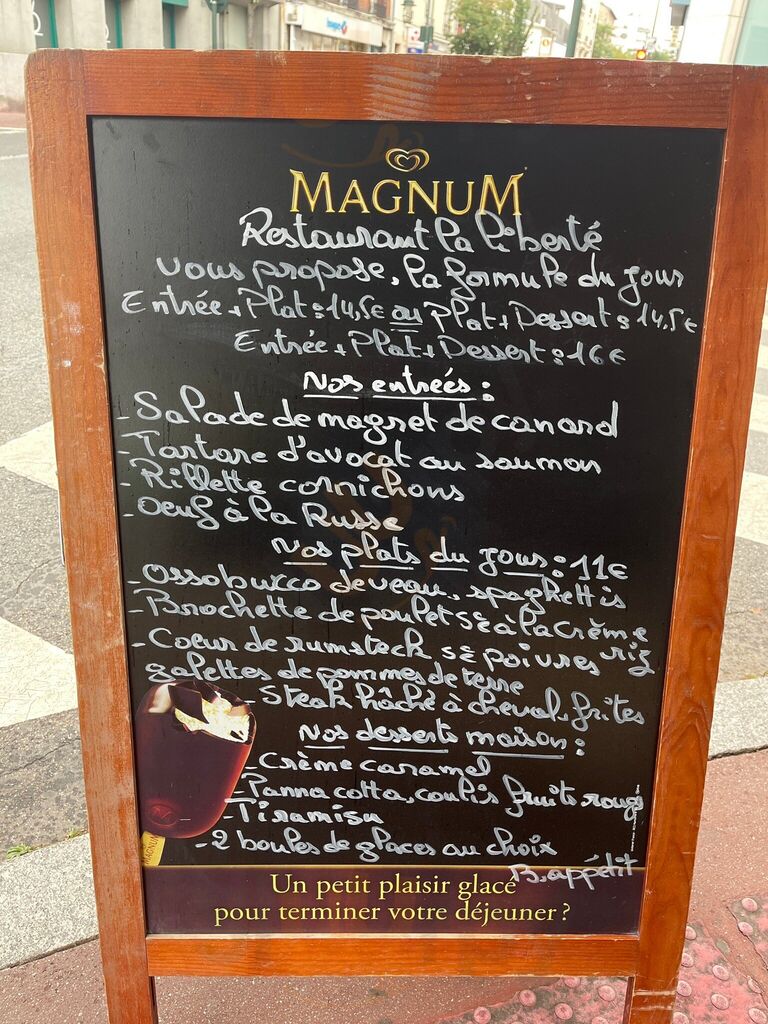 MAGNUM
Restaurant la liberté
vous propose, la formule du jour
Entrée + Plat : 14,5€ ou Plat + Dessert : 14,5€
Entrée + Plat + Dessert : 16€
Nos entrées :
- Salade de magret de canard
- Tartare d'avocat au saumon
- Rillette cornichons
- Oeuf à la Russe
Nos plats du jour : 11€
- Ossobucco de veau, spaghettis
- Brochette de poulet sce à la Crème
riz
- Coeur de rumsteck sce poivres
galettes de pommes de terre
Steak hâché à cheval, frites
Nos desserts maison :
- Crème caramel
- Panna cotta, coulis fruits rouges
- Tiramisu
- 2 boules de glaces au choix
B. appétit
MAGNUM
Un petit plaisir glacé
pour terminer votre déjeuner ?